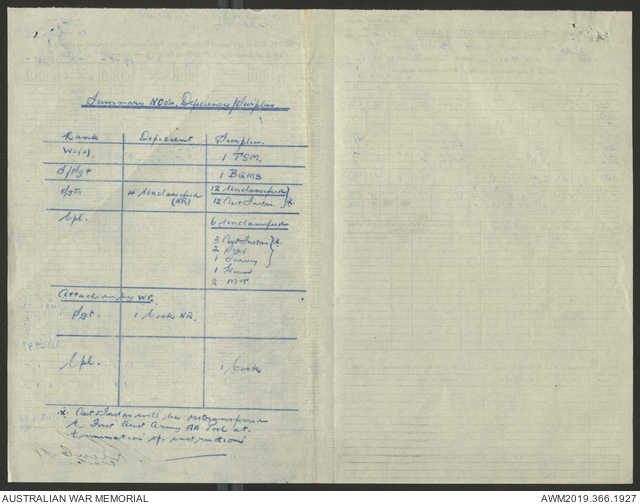 Summary NCOs, Deficiency / Surplus.
Rank Deficient Surplus.
WO(2). 1 TSM.
S/Sgt 1 BQMS
Sgts 4 Unclassified 12 Unclassified
(NR) 12 Asst Instrs. *
Cpl. 6 Unclassified
3 Asst Instrs *
2 Sigs
1 Survey
1 Gun
2 MT
Attached by WE.
Sgt. 1 Cook NR.
Cpl. 1 Cook
* Asst Instrs will be retransferred
to Inst Aust Army AA Sch at
termination of instruction
AUSTRALIAN WAR MEMORIAL
AWM2019.366.1927